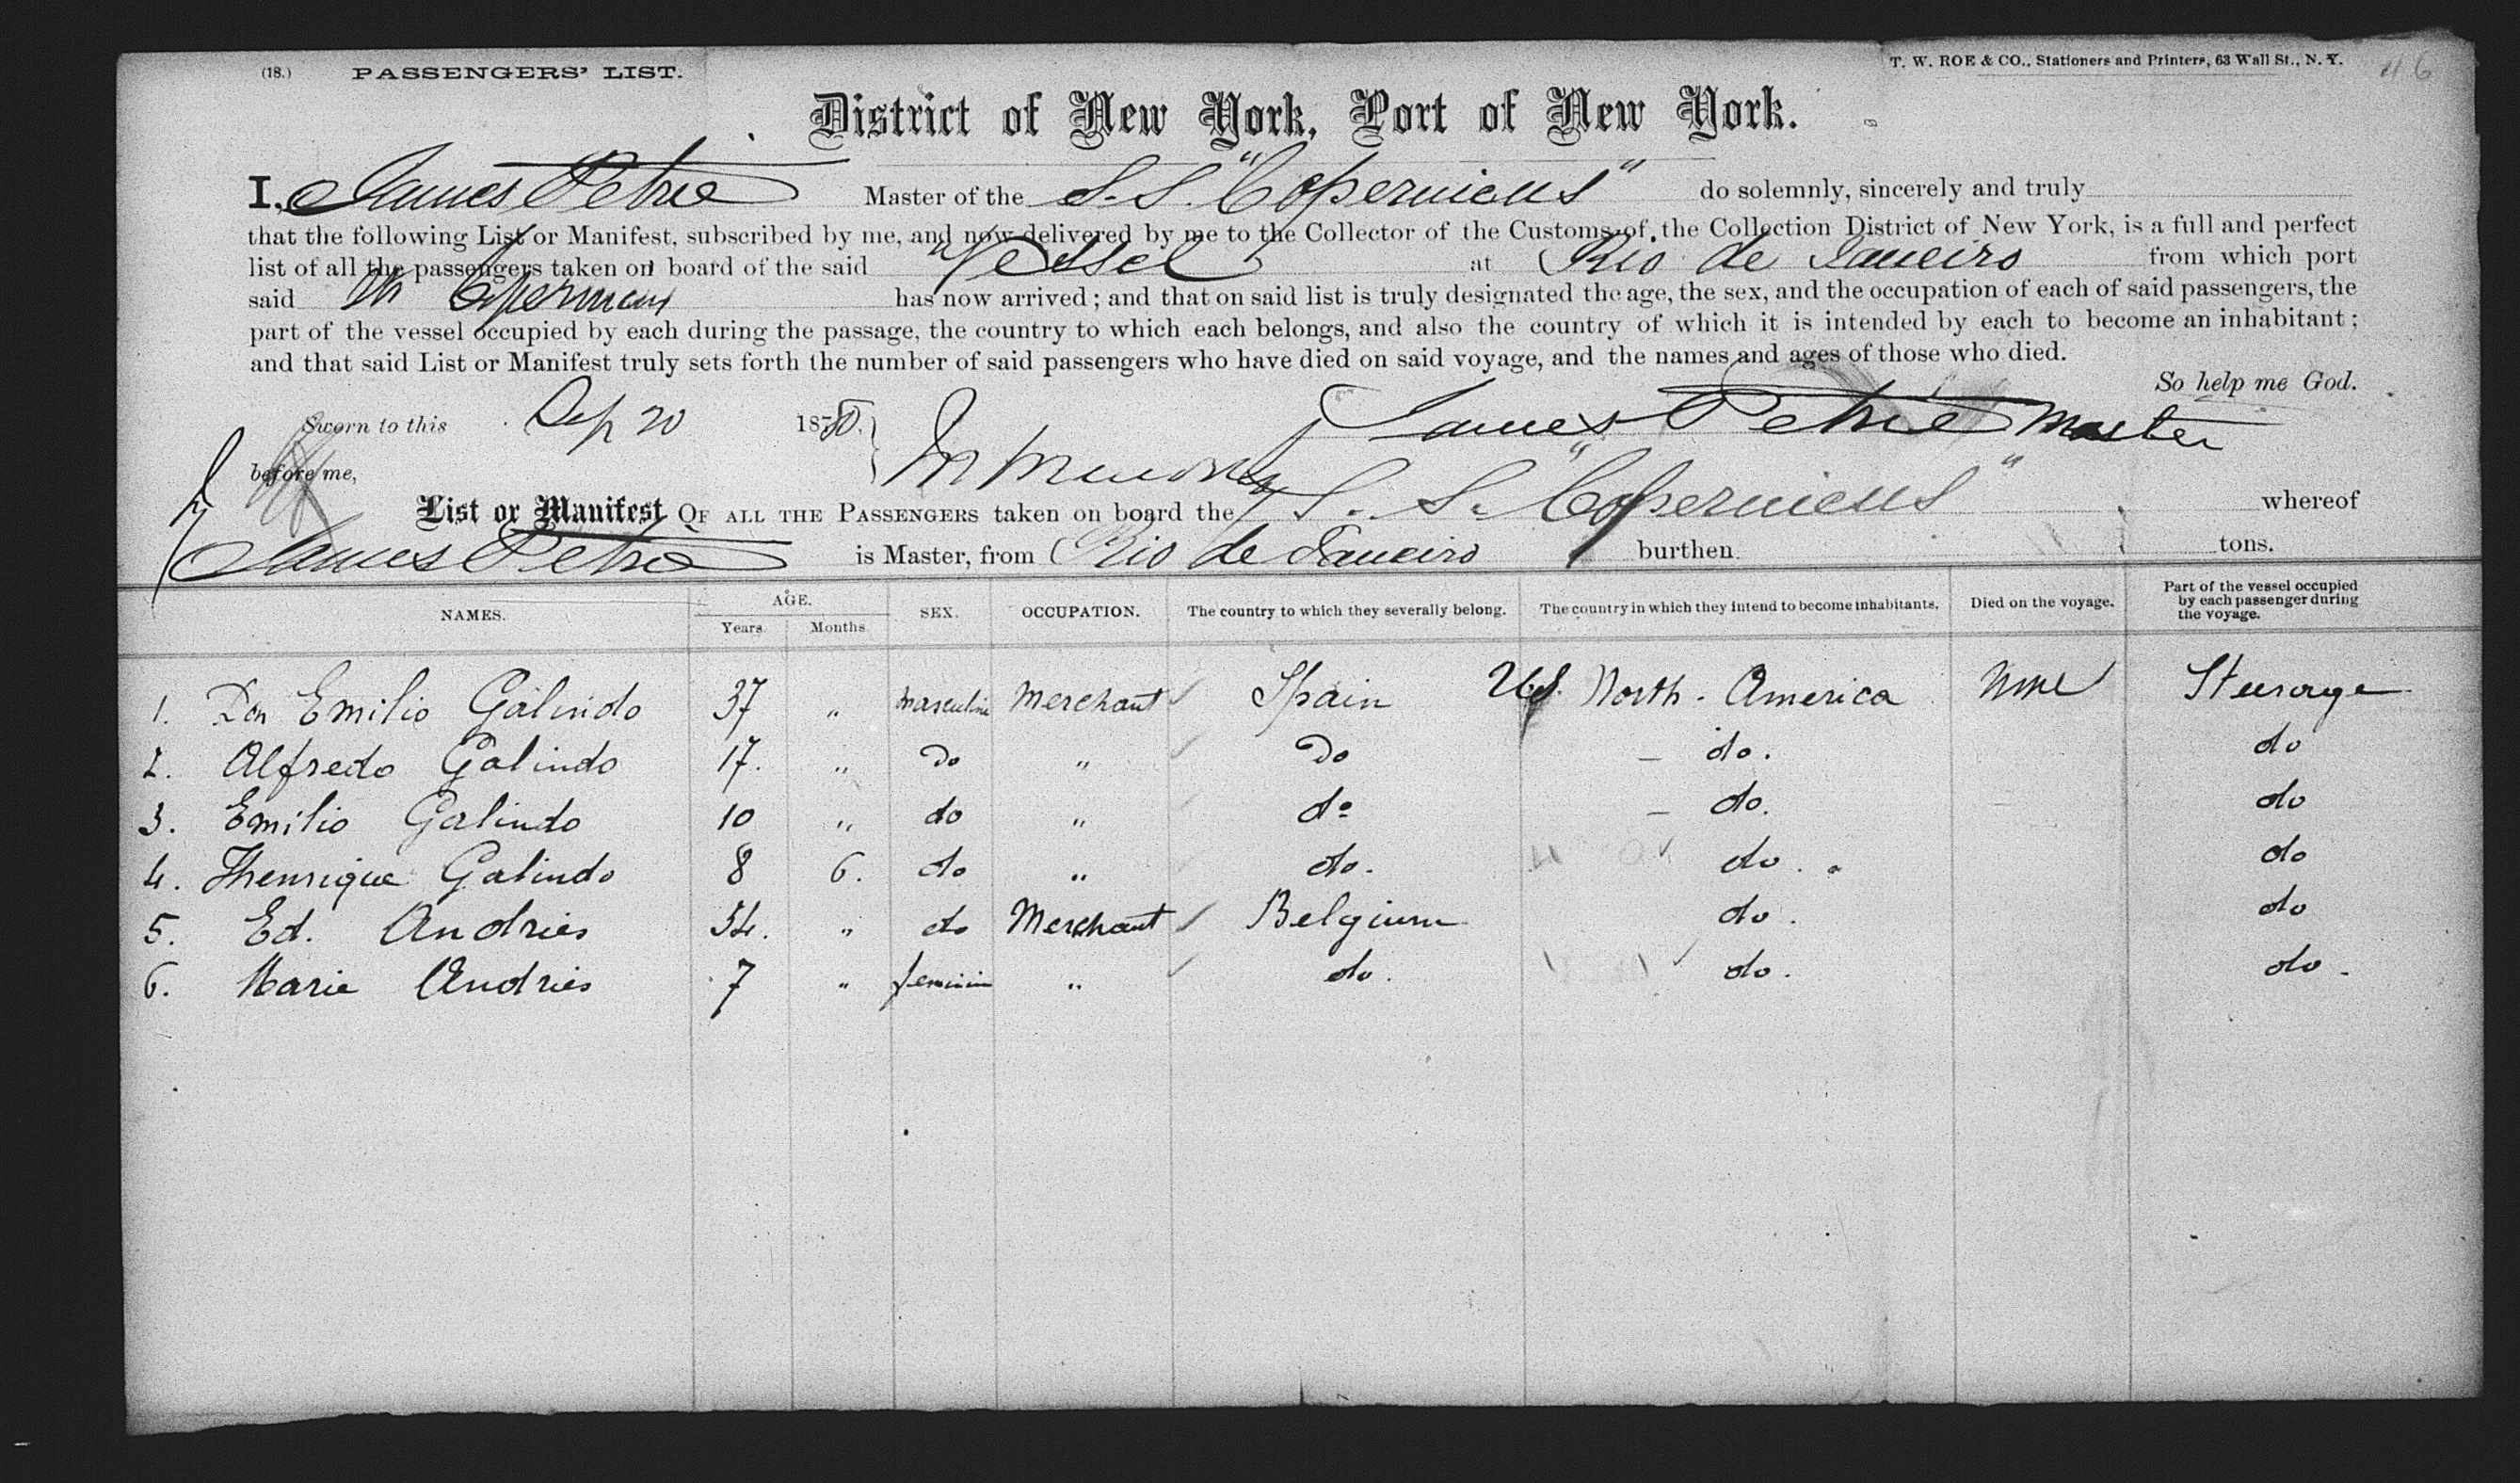 (18.) PASSENGERS' LIST. T. W. ROE & CO., Stationers and Printers, 63 Wall St., N. Y.
District of New York, Port of New York.
I, James Petrie Master of the S.S. "Copernicus" do solemnly, sincerely and truly
that the following List or Manifest, subscribed by me, and now delivered by me to the Collector of the Customs of the Collection District of New York, is a full and perfect
list of all the passengers taken on board of the said Vessel at Rio de Janeiro from which port
said Copernicus has now arrived; and that on said list is truly designated the age, the sex, and the occupation of each of said passengers, the
part of the vessel occupied by each during the passage, the country to which each belongs, and also the country of which it is intended by each to become an inhabitant;
and that said List or Manifest truly sets forth the number of said passengers who have died on said voyage, and the names and ages of those who died.
So help me God.
Sworn to this Sep 20 1880. James Petrie Master
before me,
List or Manifest OF ALL THE PASSENGERS taken on board the S. S. "Copernicus" whereof
James Petrie is Master, from Rio de Janeiro burthen tons.
NAMES. AGE. Years. Months. SEX. OCCUPATION. The country to which they severally belong. The country in which they intend to become inhabitants. Died on the voyage. Part of the vessel occupied by each passenger during the voyage.
1. Don Emilio Galindo 37 " masculin Merchant Spain US North-America None Steerage
2. Alfredo Galindo 17. " Do " Do – do. do
3. Emilio Galindo 10 " do " do – do. do
4. Thenrique Galindo 8 6. do " do. do. do
5. Ed. Andries 34. " do Merchant Belgium do. do
6. Marie Andries 7 " feminin " do. do. do.